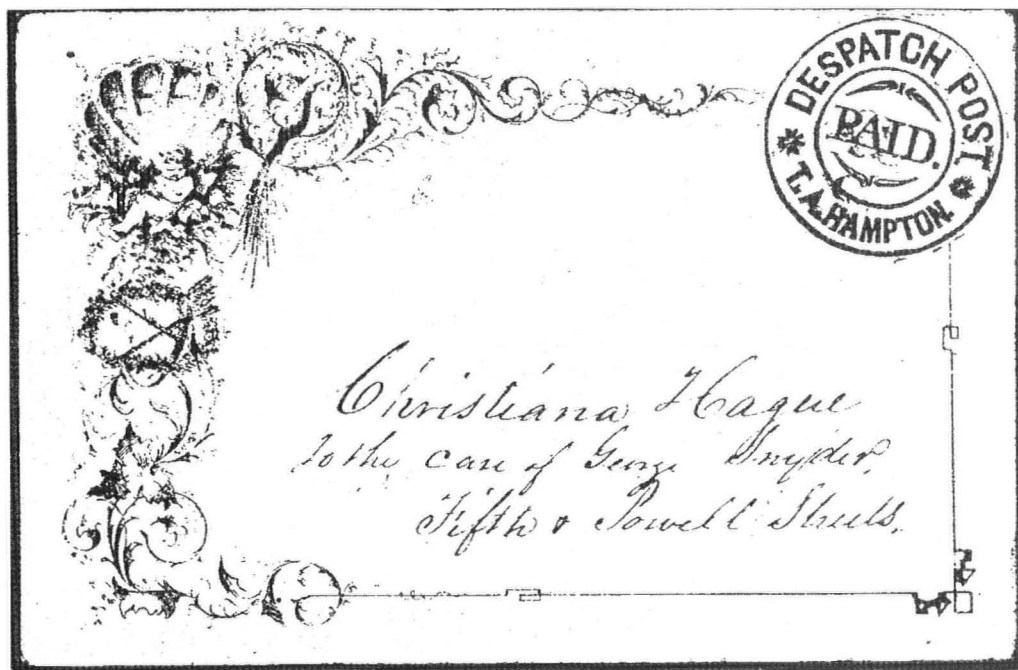 DESPATCH POST
PAID.
T.A. HAMPTON.
Christiana Hague
to the care of George Snyder,
Fifth & Powell Streets.